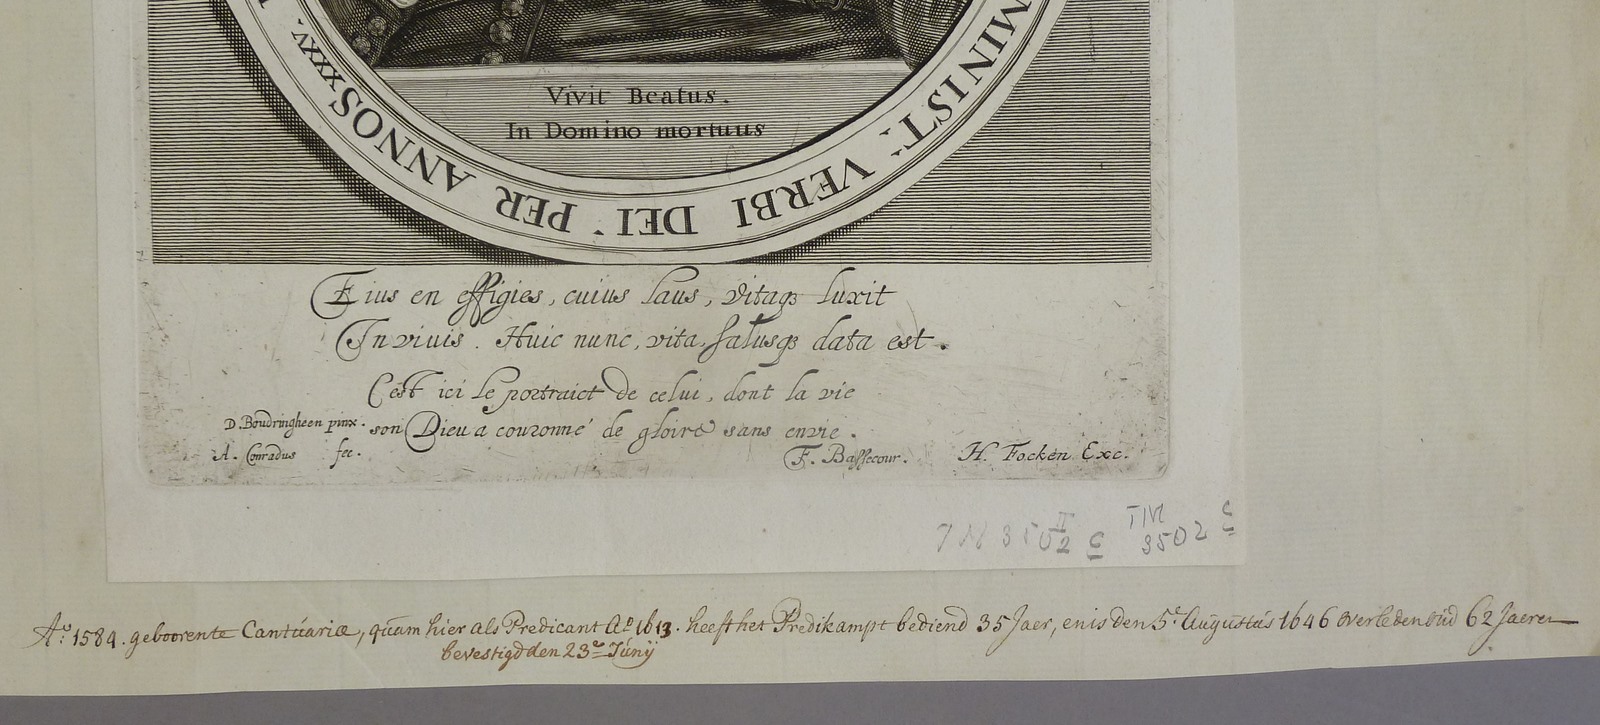 MINIST. VERBI DEI. PER ANNOS XXXV.
Vivit Beatus.
In Domino mortuus
Eius en effigies, cuius laus, vitaqꝫ luxit
In viuis. Huic nunc, vita, salusqꝫ data est.
C'est ici le portraict de celui, dont la vie
son Dieu a couronné de gloire sans envie.
D. Boudringheen pinx.
A. Conradus fec.
F. Bassecour.
H. Focken Exc.
TM 3502 c
Aº: 1584. geboorente Cantúariæ, quam hier als Predicant Aº 1613. heeft het Predikampt bediend 35 Jaer, en is den 5e Augustús 1646 overleden oud 62 Jaeren
bevestigd den 23e Júnij